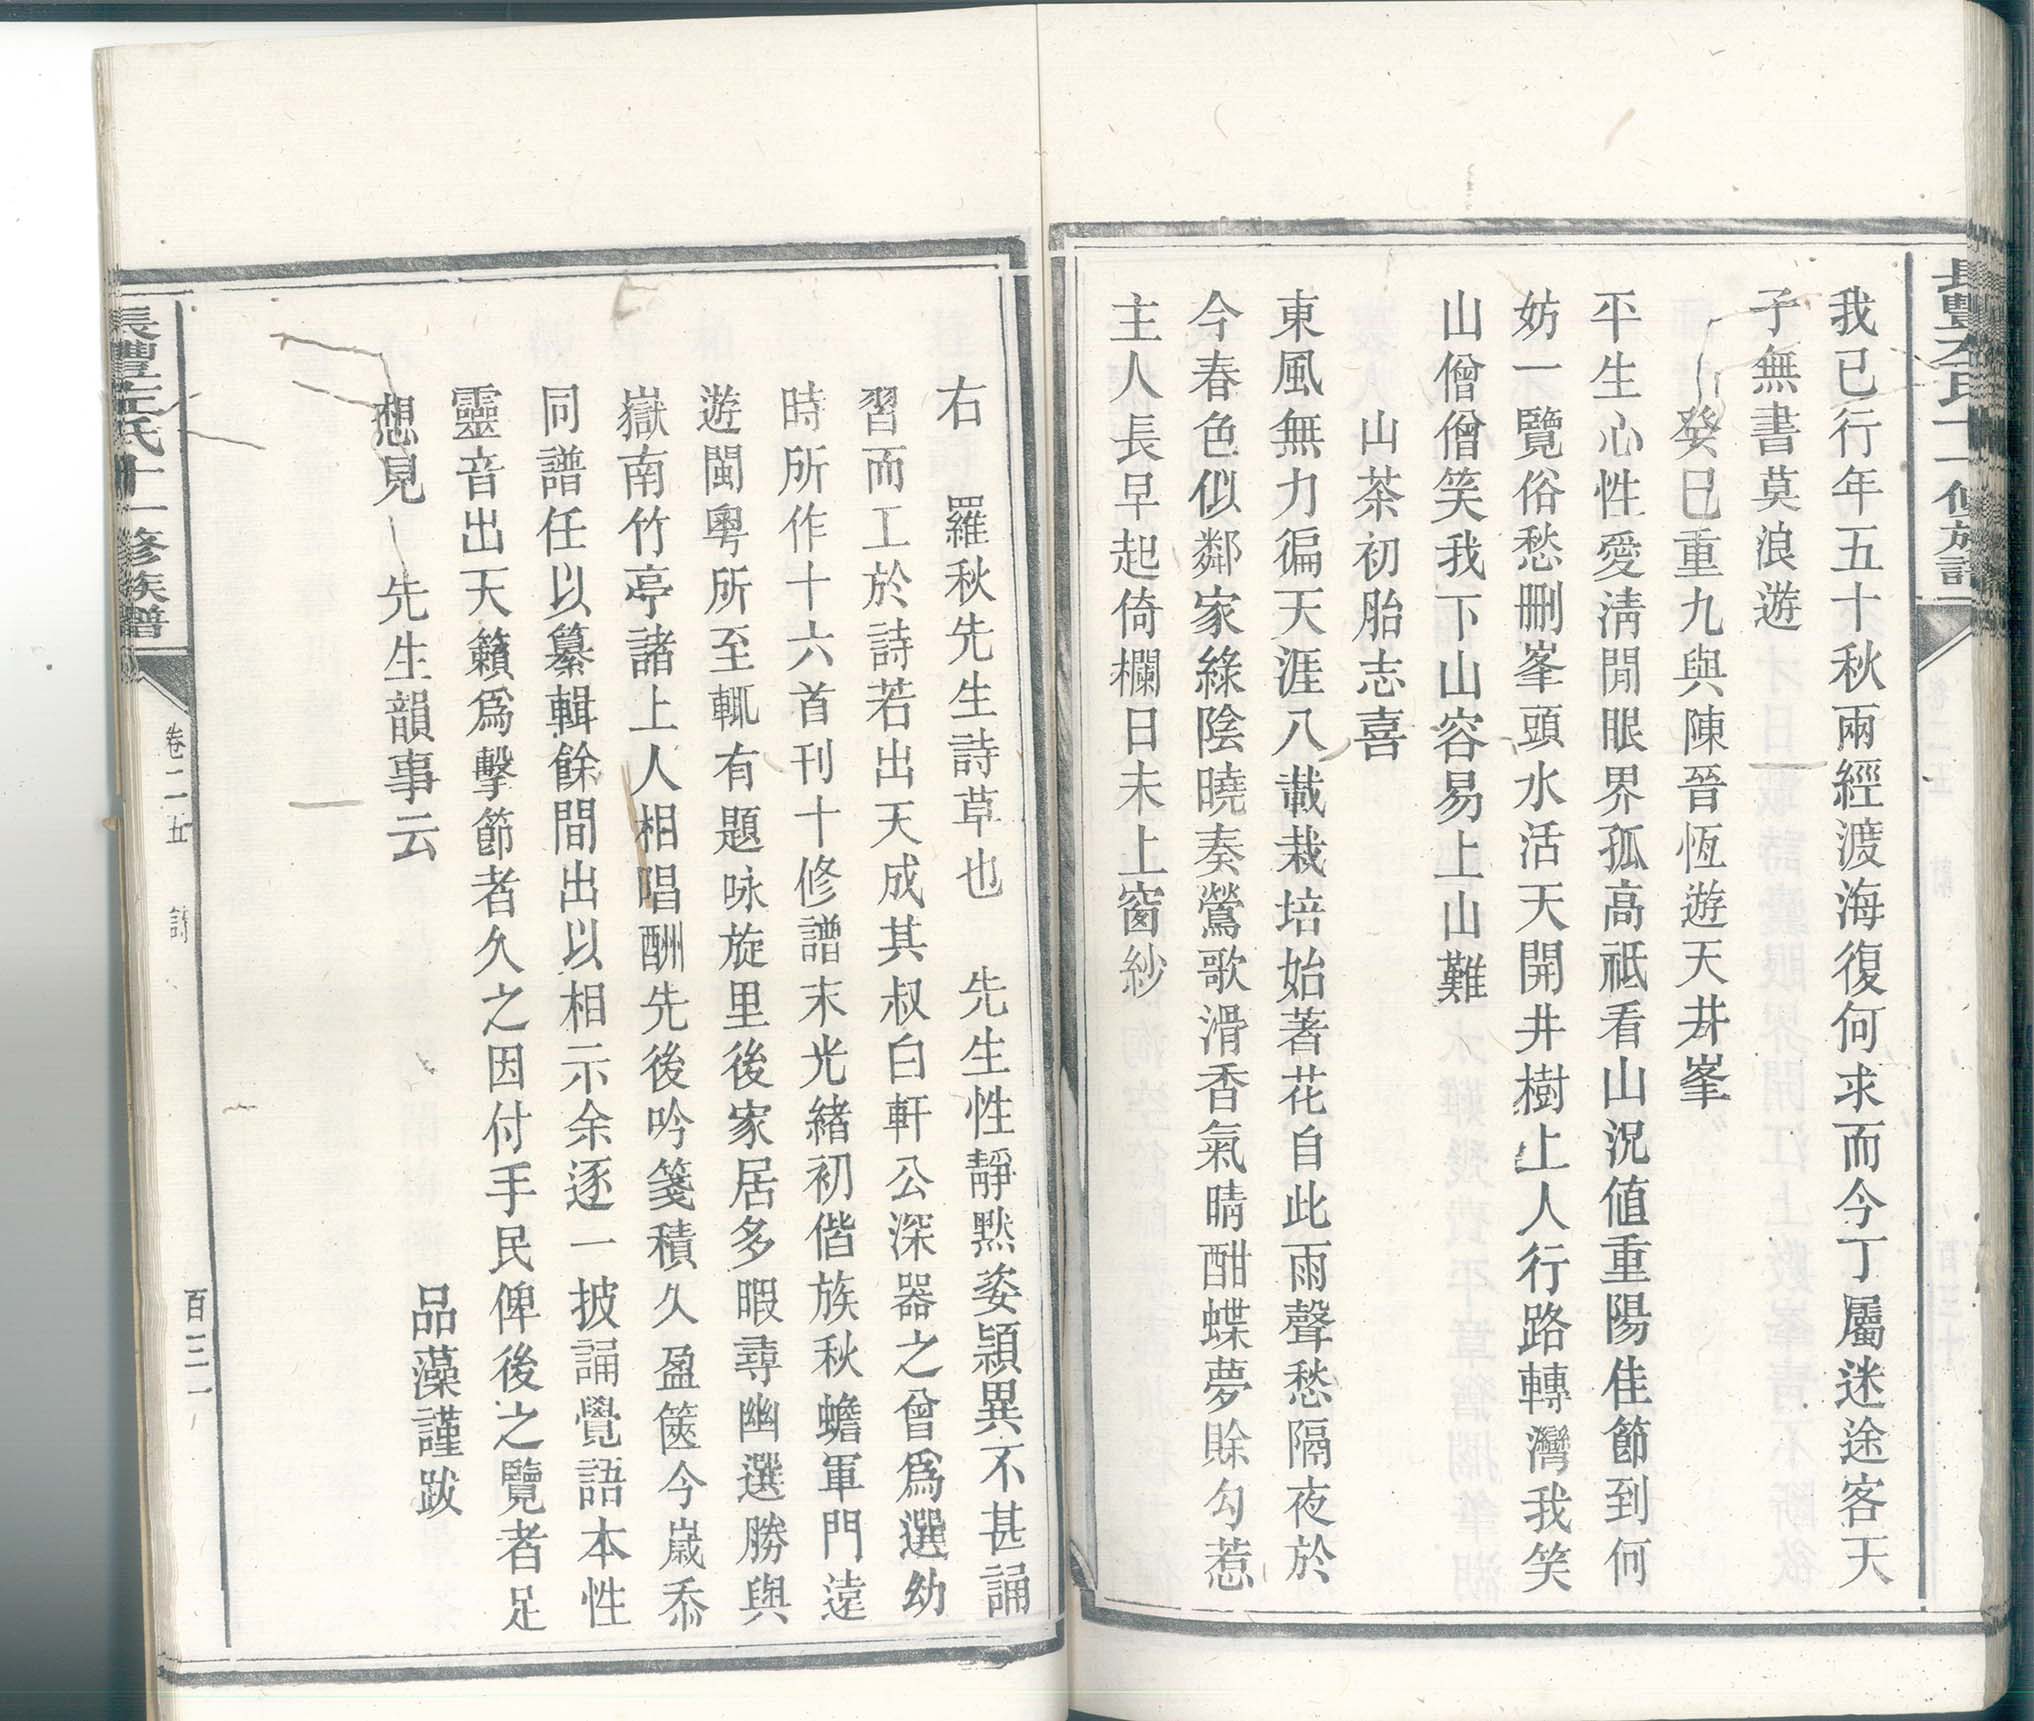 長豐左氏十一修族譜
我已行年五十秋兩經渡海復何求而今丁屬迷途客天
子無書莫浪遊
癸巳重九與陳晉恆遊天井峯
平生心性愛淸閒眼界孤高祗看山況値重陽佳節到何
妨一覽俗愁删峯頭水活天開井樹上人行路轉灣我笑
山僧僧笑我下山容易上山難
山茶初胎志喜
東風無力徧天涯八載栽培始著花自此雨聲愁隔夜於
今春色似鄰家綠陰曉奏鶯歌滑香氣晴酣蝶夢賒勾惹
主人長早起倚欄日未上窗紗
右 羅秋先生詩草也 先生性靜黙姿穎異不甚誦
習而工於詩若出天成其叔白軒公深器之曾爲選幼
時所作十六首刊十修譜末光緖初偕族秋蟾軍門遠
遊閩粵所至輒有題咏旋里後家居多暇尋幽選勝與
嶽南竹亭諸上人相唱酬先後吟箋積久盈篋今嵗忝
同譜任以纂輯餘間出以相示余逐一披誦覺語本性
靈音出天籟爲擊節者久之因付手民俾後之覽者足
想見 先生韻事云
品藻謹跋
長豐左氏十一修族譜
卷二五
百三一